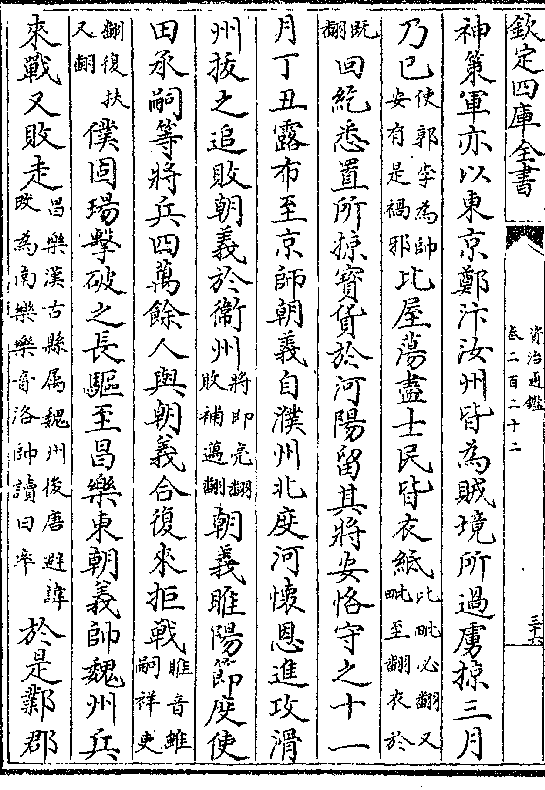 欽定四庫全書
資治通鑑
卷二百二十二
三十六
神策軍亦以東京鄭汴汝州皆為賊境所過虜掠三月
乃已使郭李為帥安有是禍邪比屋蕩盡士民皆衣紙比毗必翻又毗至翻衣於
既翻回紇悉置所掠寳貨於河陽留其將安恪守之十一
月丁丑露布至京師朝義自濮州北度河懷恩進攻滑
州拔之追敗朝義於衞州將即亮翻敗補邁翻朝義睢陽節度使
田承嗣等將兵四萬餘人與朝義合復來拒戰睢音雖嗣祥吏
翻復扶又翻僕固瑒擊破之長驅至昌樂東朝義帥魏州兵
來戰又敗走昌樂漢古縣屬魏州後唐避諱改為南樂樂音洛帥讀曰率於是鄴郡